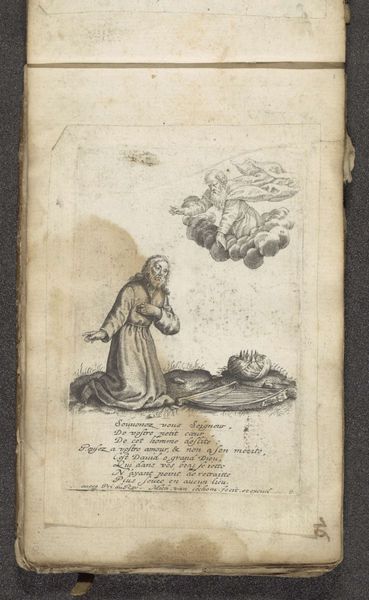 Souvenez vous Seigneur,
De vostre petit cœur,
De cet homme
a vostre amour, & non a son merite,
C'est David o grand Dieu,
Qui dans vos bras se jette
N'ayant point de retraite
Plus seure en aucun lieu.
avec Pri du Roy. Mich. van lochom fecit et excud.